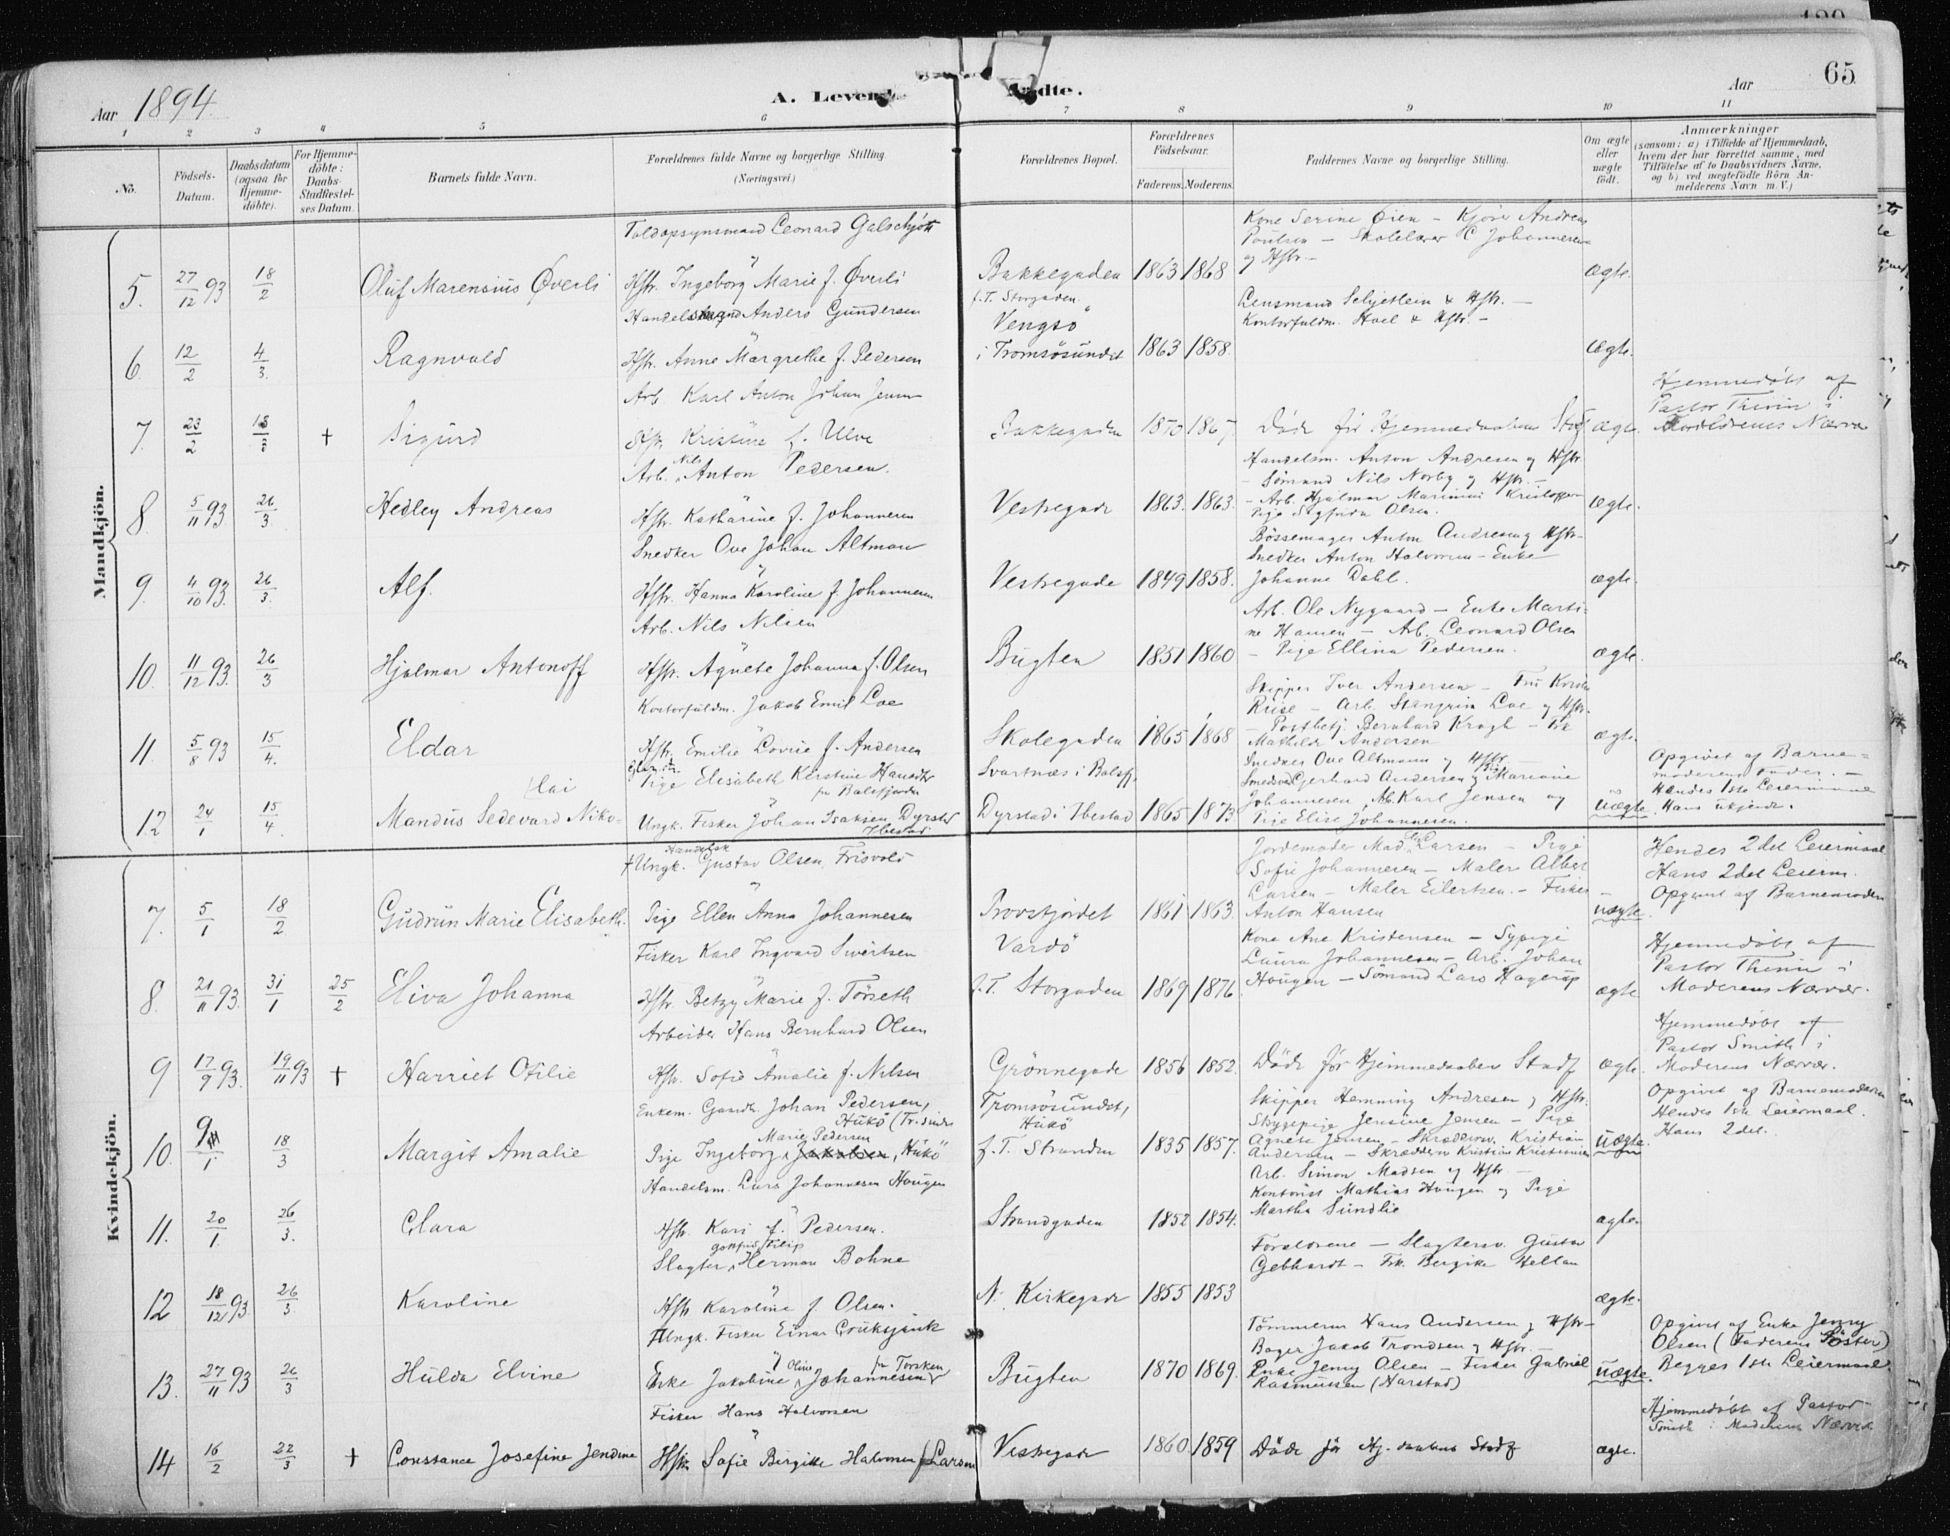 Aar 1894.
A. Levende
Fødte.
Aar
65
1 2 3 4 5 6 7 8 9 10 11
No.
Födsels-Datum.
Daabsdatum (ogsaa for Hjemme-döbte).
For Hjemme-döbte: Daabs-Stadfæstel-ses Datum.
Barnets fulde Navn.
Forældrenes fulde Navne og borgerlige Stilling (Næringsvei.)
Forældrenes Bopæl.
Forældrenes Födselsaar.
Faderens. Moderens.
Faddernes Navne og borgerlige Stilling.
Om ægte eller uægte født.
Anmærkninger
(saasom: a) i Tilfælde af Hjemmedaab, hvem der har forrettet samme, med Tilföielse af to Daabsvidners Navne, og b) ved uægtefödte Börn An-melderens Navn m. V.)
Mandkjön.
Toldopsynsmand Leonard Galschjött
Kone Serine Öien – Kjörer Andreas
Poulsen – Skolelærer C Johannesen
og Hstr. –
5. 27/12 93 18/2 Oluf Marensius Överli Hstr. Ingeborg Marie f. Överli Bakkegaden 1863 1868 ægte.
f. T. Storgaden.
Handelsmand Anders Gundersen
Vengsö
Lensmand Schjetlein & Hstr. –
Kontorfuldm. Hoel & Hstr. –
6. 12/2 4/3. Ragnvald Hstr. Anne Margrethe f. Pedersen i Tromsösundet 1863 1858. ægte.
Arb. Karl Anton Johan Jensen
Hjemmedöbt af
Pastor Thesin i
7. 23/2 + Sigurd Hstr. Kristine f. Ulve Bakkegaden 1870 1867. Döde för Hjemmedaabens Stadf. ægte. Forældrenes Nærvær
Arb. Nils Anton Pedersen.
Handelsm. Anton Andresen og Hstr
– Sömand Nils Norby og Hstr. –
– Arb. Hjalmar Marinius Kristoffersen
8 5/11 93 26/3 Hedley Andreas Hstr. Katharine f. Johannesen Vestregade 1863. 1863. Pige Sigfrida Olsen. ægte.
Snedker Ove Johan Altman
Bössemager Anton Andresen og Hstr–
Snedker Anton Halvorsen – Enke
9. 4/10 93. 26/3. Alf. Hstr. Hanna Karoline f. Johannesen Vestregade 1849 1858. Johanne Dahl. ægte.
Arb. Nils Nilsen
Arb. Ole Nygaard – Enke Marti-
ne Hansen – Arb. Leonard Olsen
10. 11/12 93. 26/3 Hjalmar Antonoff Hstr. Agnete Johanna f. Olsen Bugten 1851 1860 – Pige Ellina Pedersen. ægte.
Kontorfuldm. Jakob Emil Loe
Skipper Iver Andersen – Fru
Riise – Arb. Stangrim Loe og Hstr.
– Postbetj. Bernhard Krogh – Frk
11. 5/8 93 15/4. Eldar Hstr. Emilie Lovise f. Andersen Skolegaden 1865 1868 Mathilde Andersen ægte.
Pige Elisabeth Kirstine Hansdtr fra Balsfjorden
Svartnæs i Balsfj.
Snedker Ove Altmann og Hstr.
Smedsvd Gerhard Andersen og Pige Mariane
Opgivet af Barne-
moderens Fader. –
Hendes 1ste Leiermaal
12 24/1 15/4. Mandus Sedevard Niko-lai Ungk. Fisker Johan Isaksen, Dyrstad Ibestad Dyrstad i Ibestad 1865 1873. Johannesen, Arb. Karl Jensen og
Pige Elise Johannesen. uægte Hans ukjendt.
Kvindekjön.
† Ungk. Handelsk Gustav Olsen Frisvold
Jordemoder Mad. Larsen – Pige
Sofie Johannesen – Maler Albert
Larsen – Maler Eilertsen. – Fisker
Hendes 2det Leiermaal
Hans 2det Leierm.
Opgivet af Barnemoderen
7. 5/1 18/2 Gudrun Marie Elisabeth. Pige Ellen Anna Johannesen Provstjordet 1861 1863. Anton Hansen uægte.
Fisker Karl Ingvard Sivertsen
Vardö
Kone Ane Kristensen – Sypige
Laura Johannesen – Arb. Johan
Hjemmedöbt af
Pastor Thesin i
8. 21/11 93. 31/1 25/2 Eliva Johanna Hstr. Betzy Marie f. Törseth f. T. Storgaden 1869 1876. Hougen – Sömand Lars Hagerup ægte Moderens Nærvær.
Arbeider Hans Bernhard Olsen
Hjemmedöbt af
Pastor Smith i
9 17/9 93. 19/11 93 + Harriet Otilie Hstr. Sofie Amalie f. Nilsen Grönnegade 1856 1852. Döde för Hjemmedaabens Stadf ægte. Moderens Nærvær.
Enkem. Gaardbr. Johan Pedersen, Hukö (Tr.sundet
Tromsösundet, Hukö
Skipper Henning Andresen og Hstr.
Skrypige Jensine Jensen – Pige
Opgivet af Barnemoderen
Hendes 1ste Leiermaal.
Hans 2det.
10. 9/1 18/3 Margit Amalie Pige Ingeborg Marie Pedersen, Hukö f. T. Stranden 1835 1857. Agnete Jensen – Skræddersv. Kristian
Andersen – Skræddersv Kristian Kristiansen uægte.
Handelsm. Lars Johannesen Hougen
Arb. Simon Madsen og Hstr –
Kontorist Mathias Hougen og Pige
11. 20/1. 26/3. Clara Hstr. Kari f. Pedersen. Strandgaden 1852 1854. Martha Sundlie ægte.
Slagter Gottfried Filip Herman Bohne
Forældrene – Slagtersv. Gustav
Gebhardt – Frk. Bergitte Hellan
12 18/12 93. 26/3 Karoline Hstr Karoline f. Olsen. N. Kirkegade 1855 1853 ægte.
Ungk. Fisker Einar
Tömmerm Hans Andersen og Hstr–
Bager Jacob Trondsen og Hstr. –
Opgivet af Enke Jenny
Olsen (Faderens Söster)
13. 27/11 93 26/3 Hulda Elvine Enke Jakobine Oline Johannesen fra Torsken Bugten 1870 1869. Enke Jenny Olsen – Fisker Gabriel
Rasmussen (Harstad) uægte. Begges 1ste Leiermaal
Fisker Hans Halvorsen
Hjemmedöbt af Pastor
Smith i Moderens Nærvær
14 16/2 22/3 + Constance Josefine Jendine Hstr. Sofie Birgitte Halvorsen f. Larsen Vestregade 1860 1859 Döde för Hj.daabens Stadf ægte.